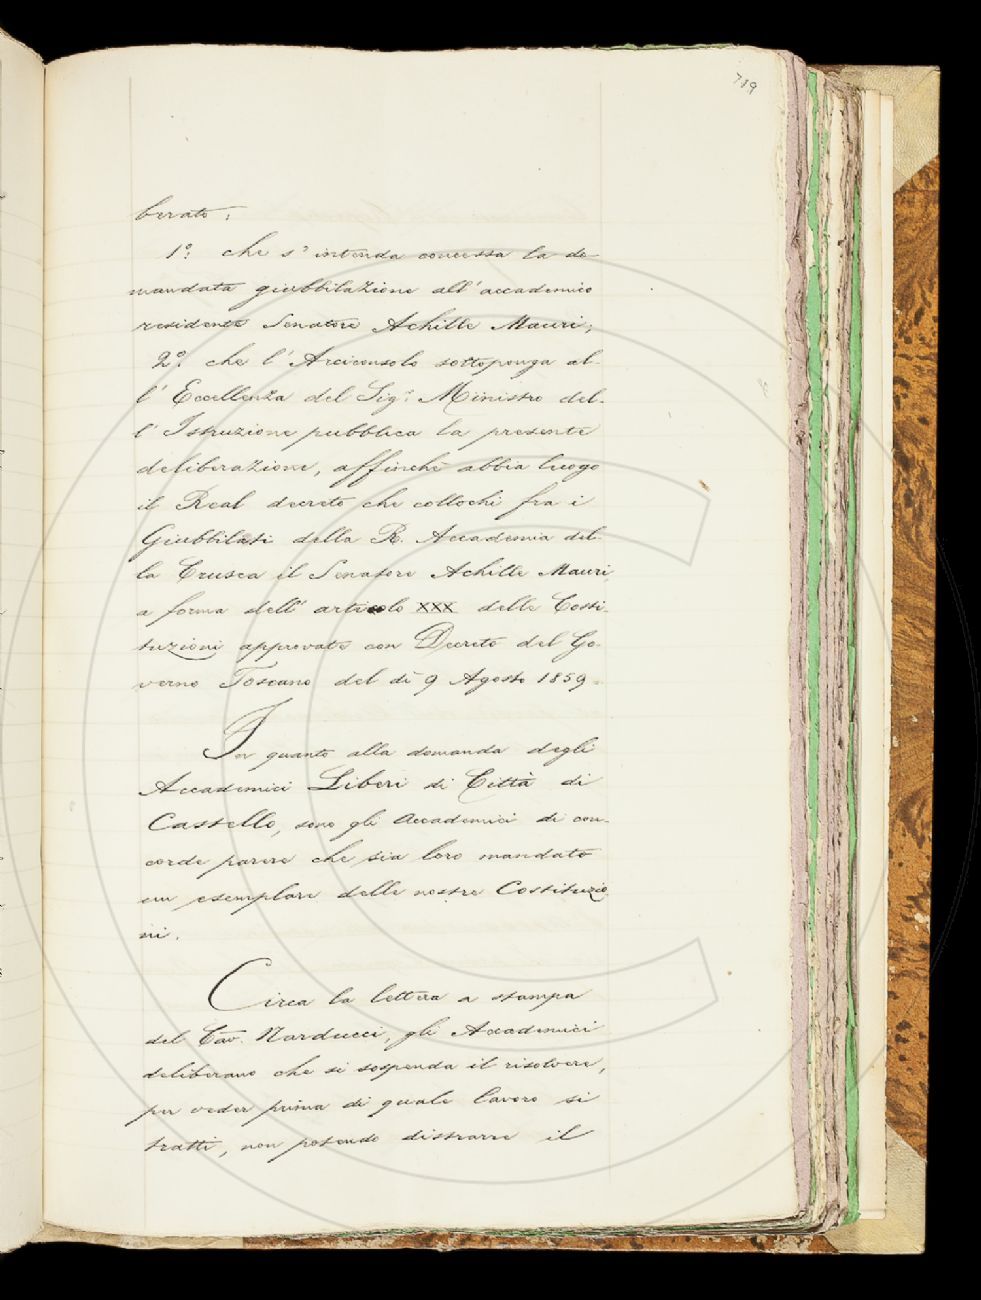 719
berato:
1º: che s'intenda concessa la do-
mandata giubbilazione all'accademico
residente Senatore Achille Mauri;
2º: che l'Arciconsolo sottoponga al-
l'Eccellenza del Sig.r Ministro del-
l'Istruzione pubblica la presente
deliberazione, affinchè abbia luogo
il Real decreto che collochi fra i
Giubbilati della R. Accademia del-
la Crusca il Senatore Achille Mauri
a forma dell'articolo XXX delle Costi-
tuzioni approvate con Decreto del Go-
verno Toscano del dì 9 Agosto 1859.
In quanto alla domanda degli
Accademici Liberi di Città di
Castello, sono gli Accademici di con-
corde parere che sia loro mandato
un esemplare delle nostre Costituzio-
ni.
Circa la lettera a stampa
del Cav. Narducci, gli Accademici
deliberano che si sospenda il risolvere,
per veder prima di quale lavoro si
tratti, non potendo distrarre il